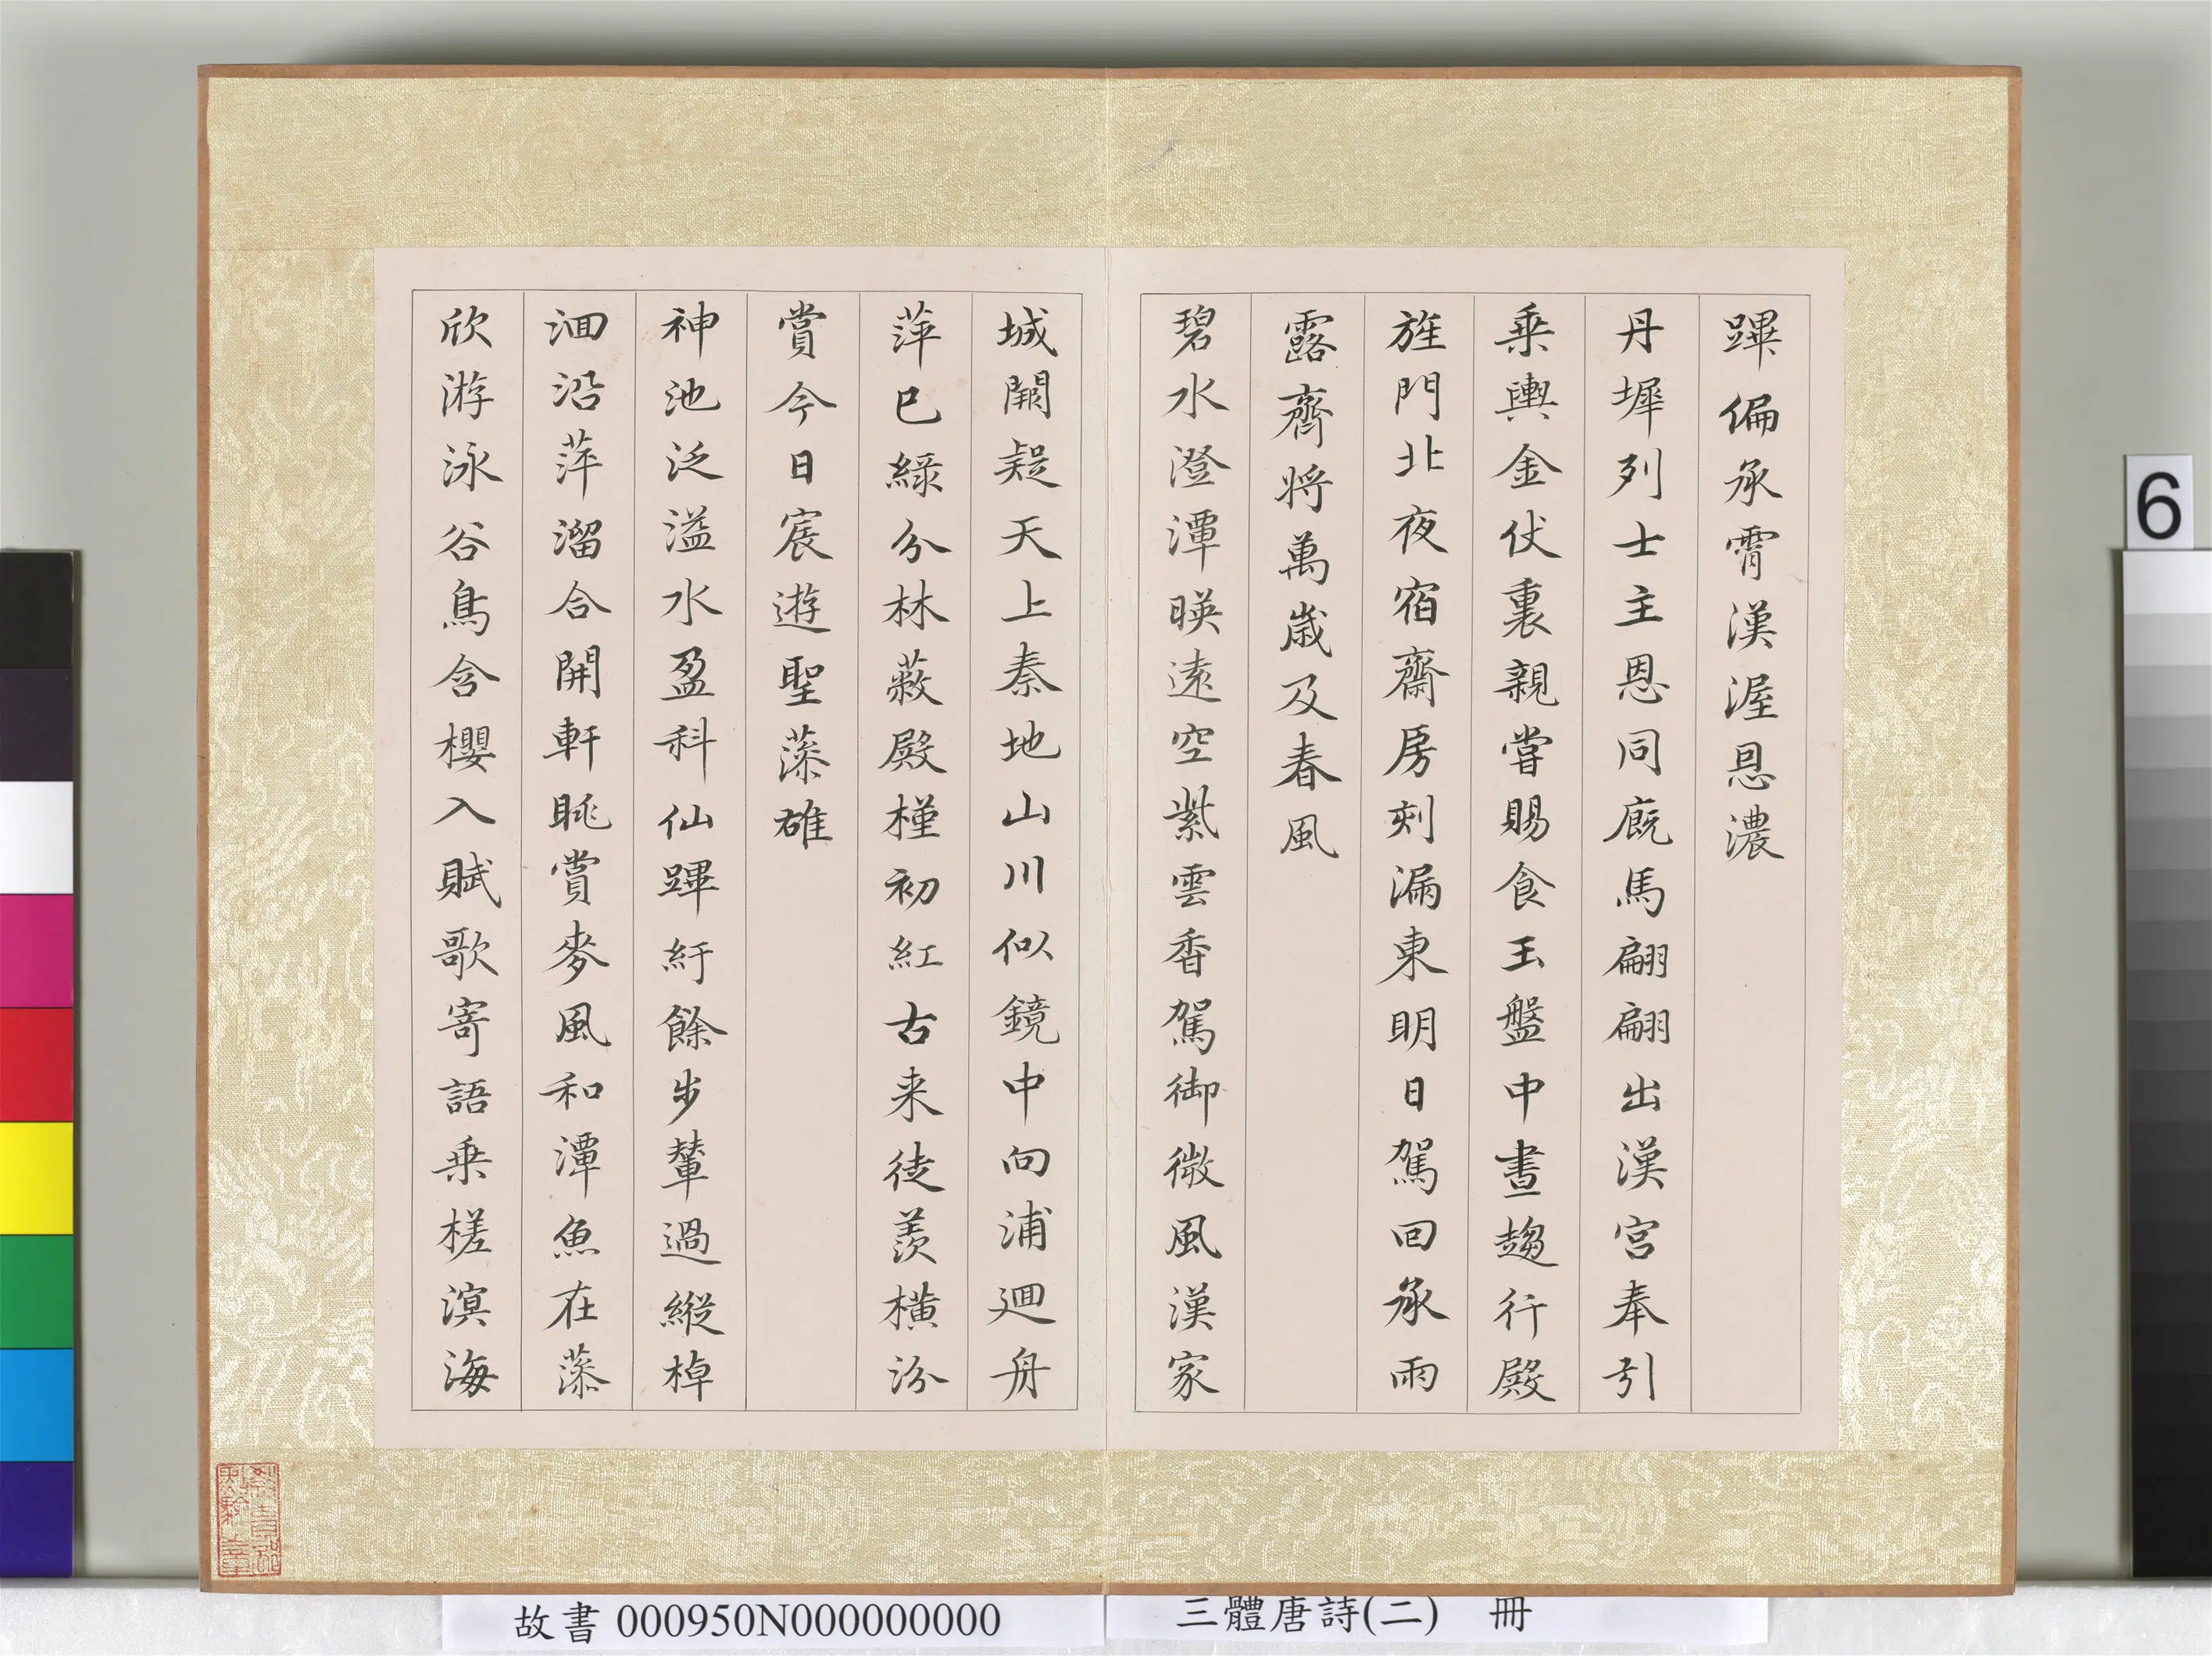 蹕偏承霄漢渥恩濃
丹墀列士主恩同廐馬翩翩出漢宮奉引
乗輿金仗裏親嘗賜食玉盤中晝趨行殿
旌門北夜宿齋房刻漏東明日駕回承雨
露齊將萬歲及春風
碧水澄潭暎遠空紫雲香駕御微風漢家
城闕疑天上秦地山川似鏡中向浦廻舟
萍巳綠分林蔽殿槿初紅古来徒羨橫汾
賞今日宸遊聖藻雄
神池泛溢水盈科仙蹕紆餘步輦過縱棹
洄沿萍溜合開軒眺賞麥風和潭魚在藻
欣游泳谷鳥含櫻入賦歌寄語乗槎溟海
故書 000950N000000000
三體唐詩(二) 冊
6